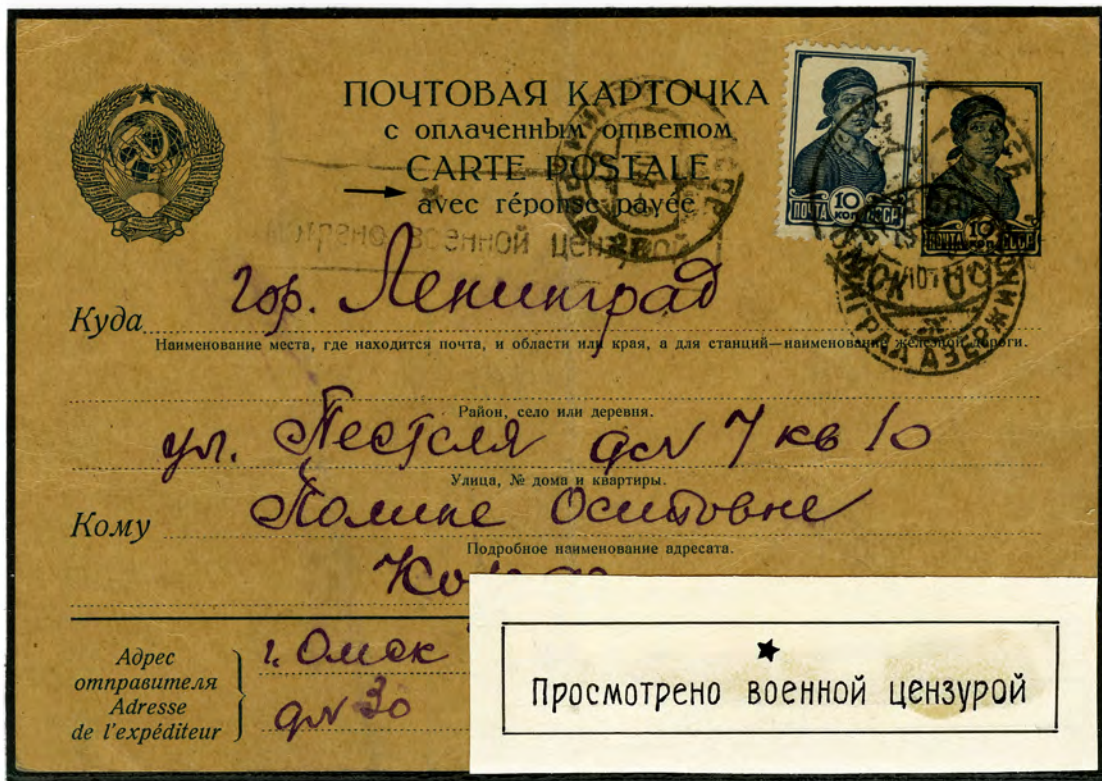 ПОЧТОВАЯ КАРТОЧКА
с оплаченным ответом
CARTE POSTALE
avec réponse payée
ПОЧТА 10 КОП. СССР
ПОЧТА 10 КОП. СССР
военной цензурой
ОМСК
Куда гор. Ленинград
Наименование места, где находится почта, и области или края, а для станций—наименование железной дороги.
Район, село или деревня.
ул. Пестеля д№ 7 кв 10
Улица, № дома и квартиры.
Кому Полине Осиповне
Подробное наименование адресата.
Адрес
отправителя
Adresse
de l'expéditeur
г. Омск
д№ 30
Просмотрено военной цензурой